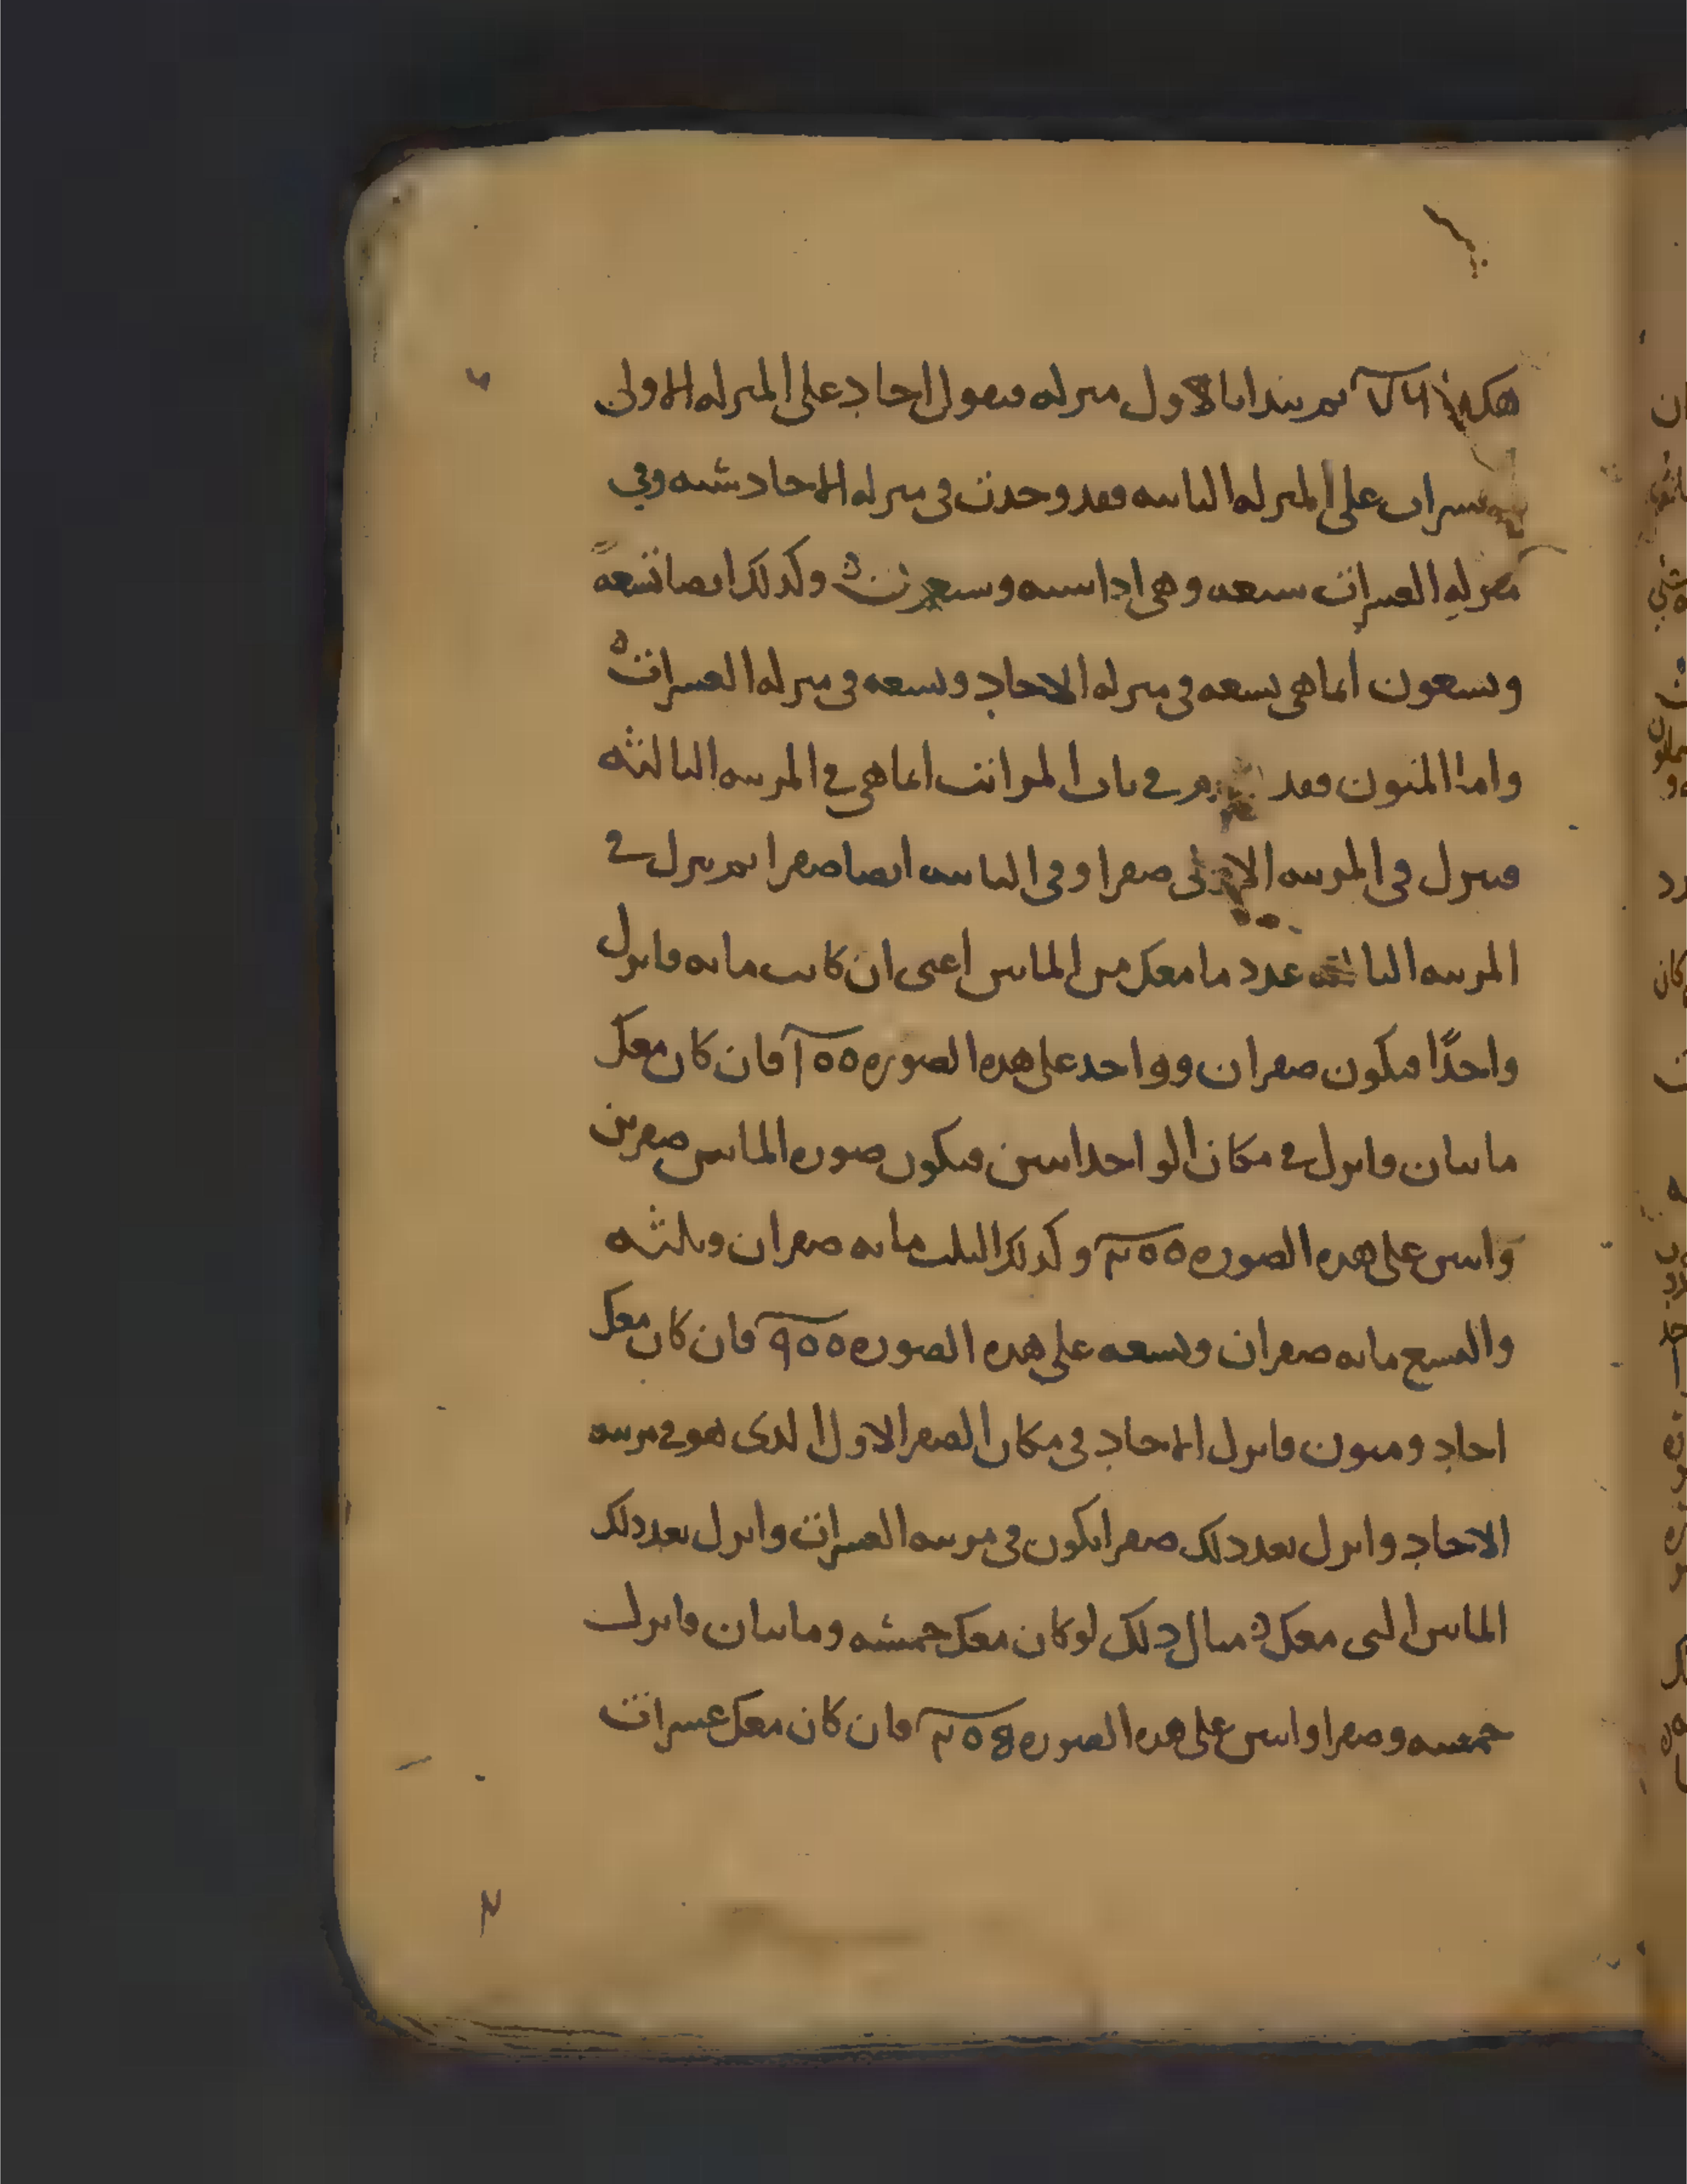 هكذا ٧٦ ثم نبتدا باول منزله فنقول احاد على المنزله الاولى
عشرات على المنزله الثانيه فقد وجدت في منزله الاحاد سته وفي
منزله العشرات سبعه وهي اذا سته وسبعون وكذلك ايضا تسعه
وتسعون انما هي تسعه في منزله الاحاد وتسعه في منزله العشرات
واما المئون فقد في باب المراتب انما هي في المرتبه الثالثه
فتنزل في المرتبه الاولى صفرا وفي الثانيه ايضا صفرا ثم تنزل في
المرتبه الثالثه عدد ما معك من المائين اعنى ان كانت مائه فانزل
واحدًا فيكون صفران وواحد على هذه الصوره ١٥٥ فان كان معك
مائتان فانزل في مكان الواحد اثنين فيكون صوره المائتين صفرين
واثنين على هذه الصوره ٢٥٥ وكذلك الثلث مائه صفران وثلثه
والتسع مائه صفران وتسعه على هذه الصوره ٩٥٥ فان كان معك
احاد ومئون فانزل الاحاد في مكان الصفر الاول الذى هو في مرتبه
الاحاد وانزل بعد ذلك صفرا يكون في مرتبه العشرات وانزل بعد ذلك
المائين التى معك مثال ذلك لو كان معك خمسه ومائتان فانزل
خمسه وصفرا واثنين على هذه الصوره ٢٥٤ فان كان معك عشرات